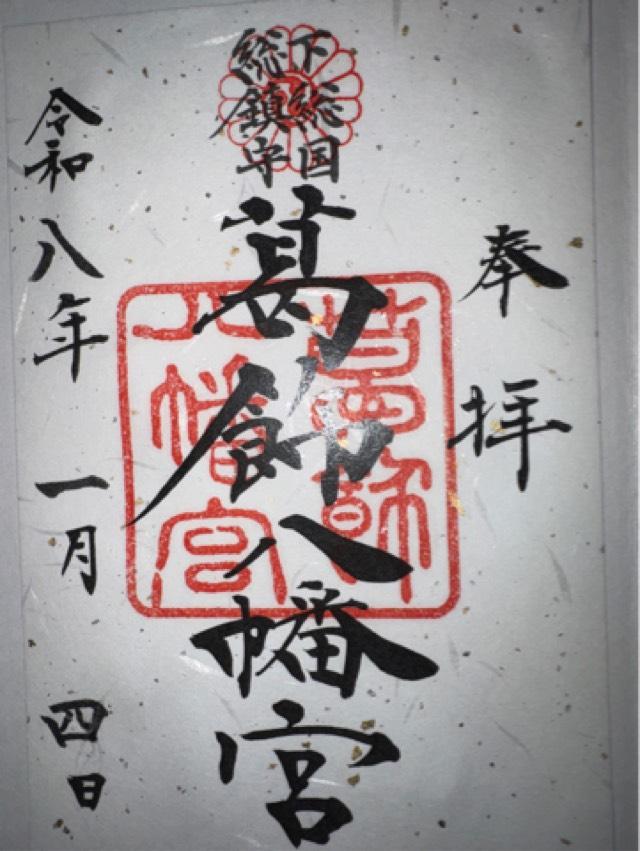 奉拝
下総国
総鎮守
葛飾八幡宮
葛飾
八幡宮
令和八年一月四日